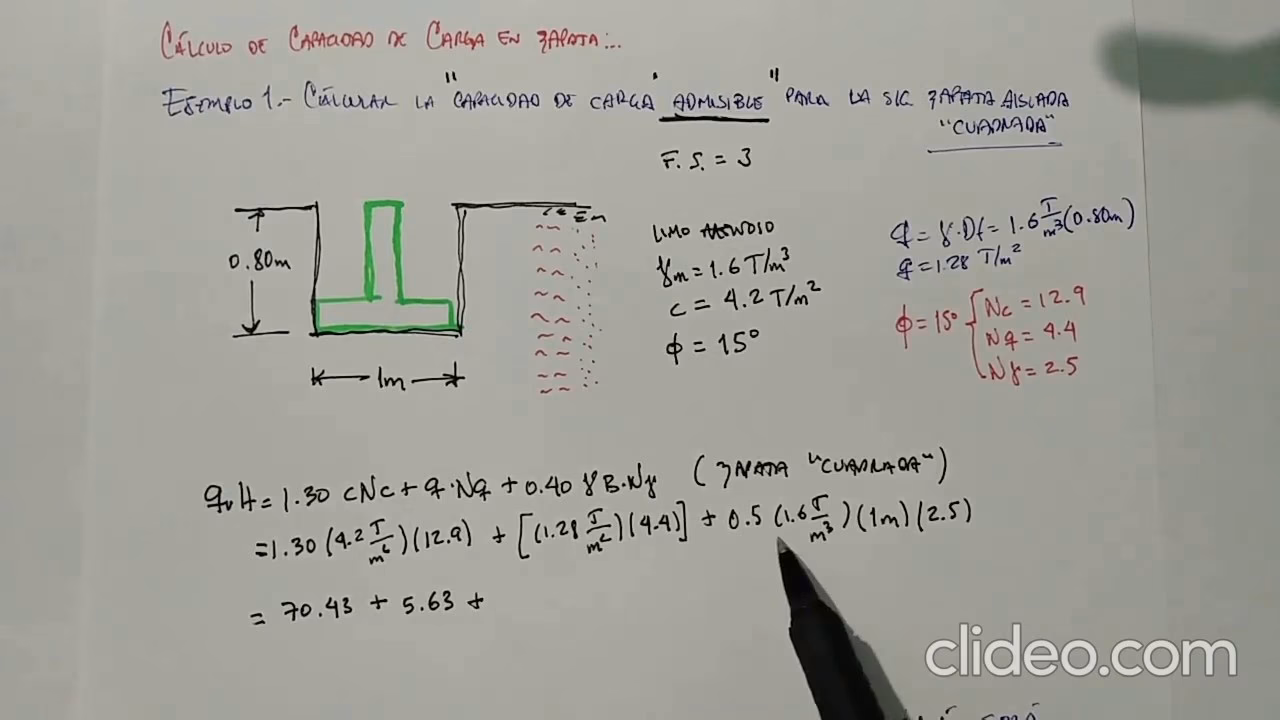 CÁLCULO DE CAPACIDAD DE CARGA EN ZAPATA...
EJEMPLO 1.- CÁLCULAR LA "CAPACIDAD DE CARGA ADMISIBLE" PARA LA SIG ZAPATA AISLADA
"CUADRADA"
F.S. = 3
0.80m
1m
LIMO
γm = 1.6 T/m³
c = 4.2 T/m²
φ = 15°
q = γ·Df = 1.6 T/m³ (0.80m)
q = 1.28 T/m²
φ = 15° { Nc = 12.9
Nq = 4.4
Nγ = 2.5
qult = 1.30 cNc + q·Nq + 0.40 γB·Nγ (ZAPATA "CUADRADA")
= 1.30 (4.2 T/m²)(12.9) + [(1.28 T/m²)(4.4)] + 0.5 (1.6 T/m³)(1m)(2.5)
= 70.43 + 5.63 +
clideo.com